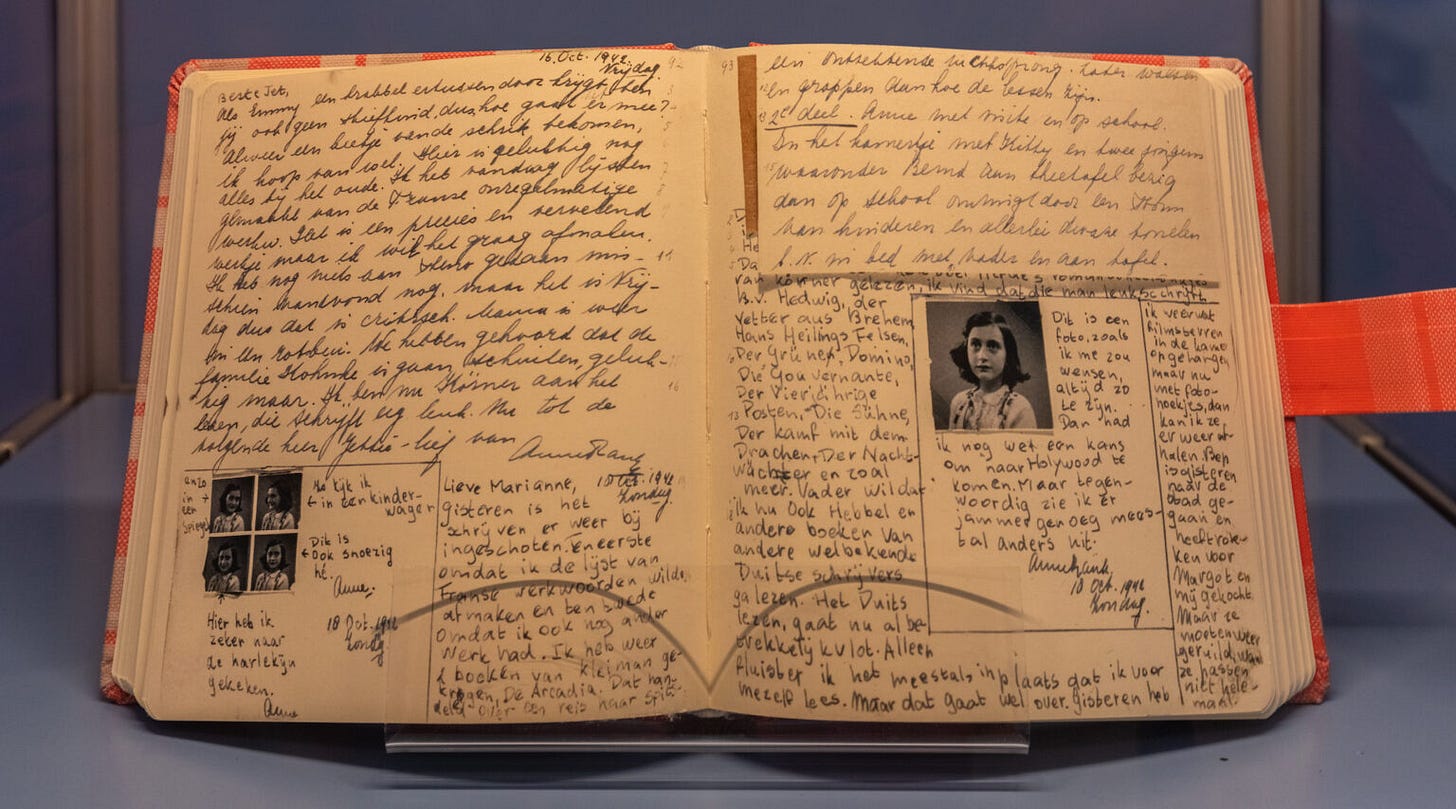 16. Oct. 1942.
Vrijdag
Beste Jet,
Als Emmy een krabbel ertussen door krijgt, ben
jij ook geen stiefkind, dus hoe gaat er mee?
Alweer een beetje van de schrik bekomen,
ik hoop van wel. Hier is gelukkig nog
alles bij het oude. Ik heb vandaag lijsten
gemaakt van de Franse onregelmatige
werkw. Het is een precies en vervelend
werkje maar ik wil het graag afmaken.
Ik heb nog niets aan steno gedaan mis-
schien vanavond nog, maar het is Vrij-
dag dus dat is critisch. Mama is weer
We hebben gehoord dat de
familie is gaan schuilen, geluk-
kig maar. Ik ben nu Körner aan het
lezen, die schrijft erg leuk. Nu tot de
volgende keer Jettie-lief van
Anne Frank
anzo
in
een
spiegel
Na kijk ik
in een kinder-
wager
Dit is
ook snoezig
hé.
Anne.
Hier heb ik
zeker naar
de harlekijn
gekeken.
Anne
18 Oct. 1942
Zondag
Lieve Marianne,
Oct. 1942
Zondag.
gisteren is het
schrijven er weer bij
ingeschoten. Eneerste
omdat ik de lijst van
Franse werkwoorden wilde
afmaken en ten twede
omdat ik ook nog ander
werk had. Ik heb weer
2 boeken van kleiman ge-
kregen, De Arcadia. Dat han-
deld over een reis naar Spits-
92
93
een ontzettende luchtsprong. Later walsen
en grappen aan hoe de lessen zijn.
2e deel. Anne met visite en op school.
In het kamertje met Kitty en twee jongens
waaronder Bernd aan theetafel bezig
dan op school omringd door een
van kinderen en allerlei dwaze tonelen
b.v. in bed met vader en aan tafel.
van körner gelezen, ik vind dat die man leuk schrijft
B.v. Hedwig, der
Vetter aus Brehem,
Hans Heilings Felsen,
Der Grüner Domino,
Die Gouvernante,
Der Vierjährige
Posten, Die Sühne,
Der kamf mit dem
Drachen, Der Nacht-
wächter en zoal
meer. Vader wil dat
ik nu ook Hebbel en
andere boeken van
andere welbekende
Duitse schrijvers
ga lezen. Het Duits
lezen, gaat nu al be-
trekkelijk vlot. Alleen
fluister ik het meestals inplaats dat ik voor
mezelf lees. Maar dat gaat wel over. gisteren heb
Dit is een
foto, zoals
ik me zou
wensen,
altijd zo
te zijn.
Dan had
ik nog wel een kans
om naar Holywood te
komen. Maar tegen-
woordig zie ik er
jammer genoeg mees-
tal anders uit.
Anne Frank.
18 Oct. 1942
Zondag.
ik veerwat
filmsterren
in de kame
opgehangen
maar nu
met foto-
hoekjes, dan
kan ik ze
er weer af-
halen. Bep
is gisteren
naar de
stad ge-
gaan en
heeft rok-
ken voor
Margot en
mij gekocht.
Maar ze
moeten weer
geruild, want
ze passen
niet hele-
maal.